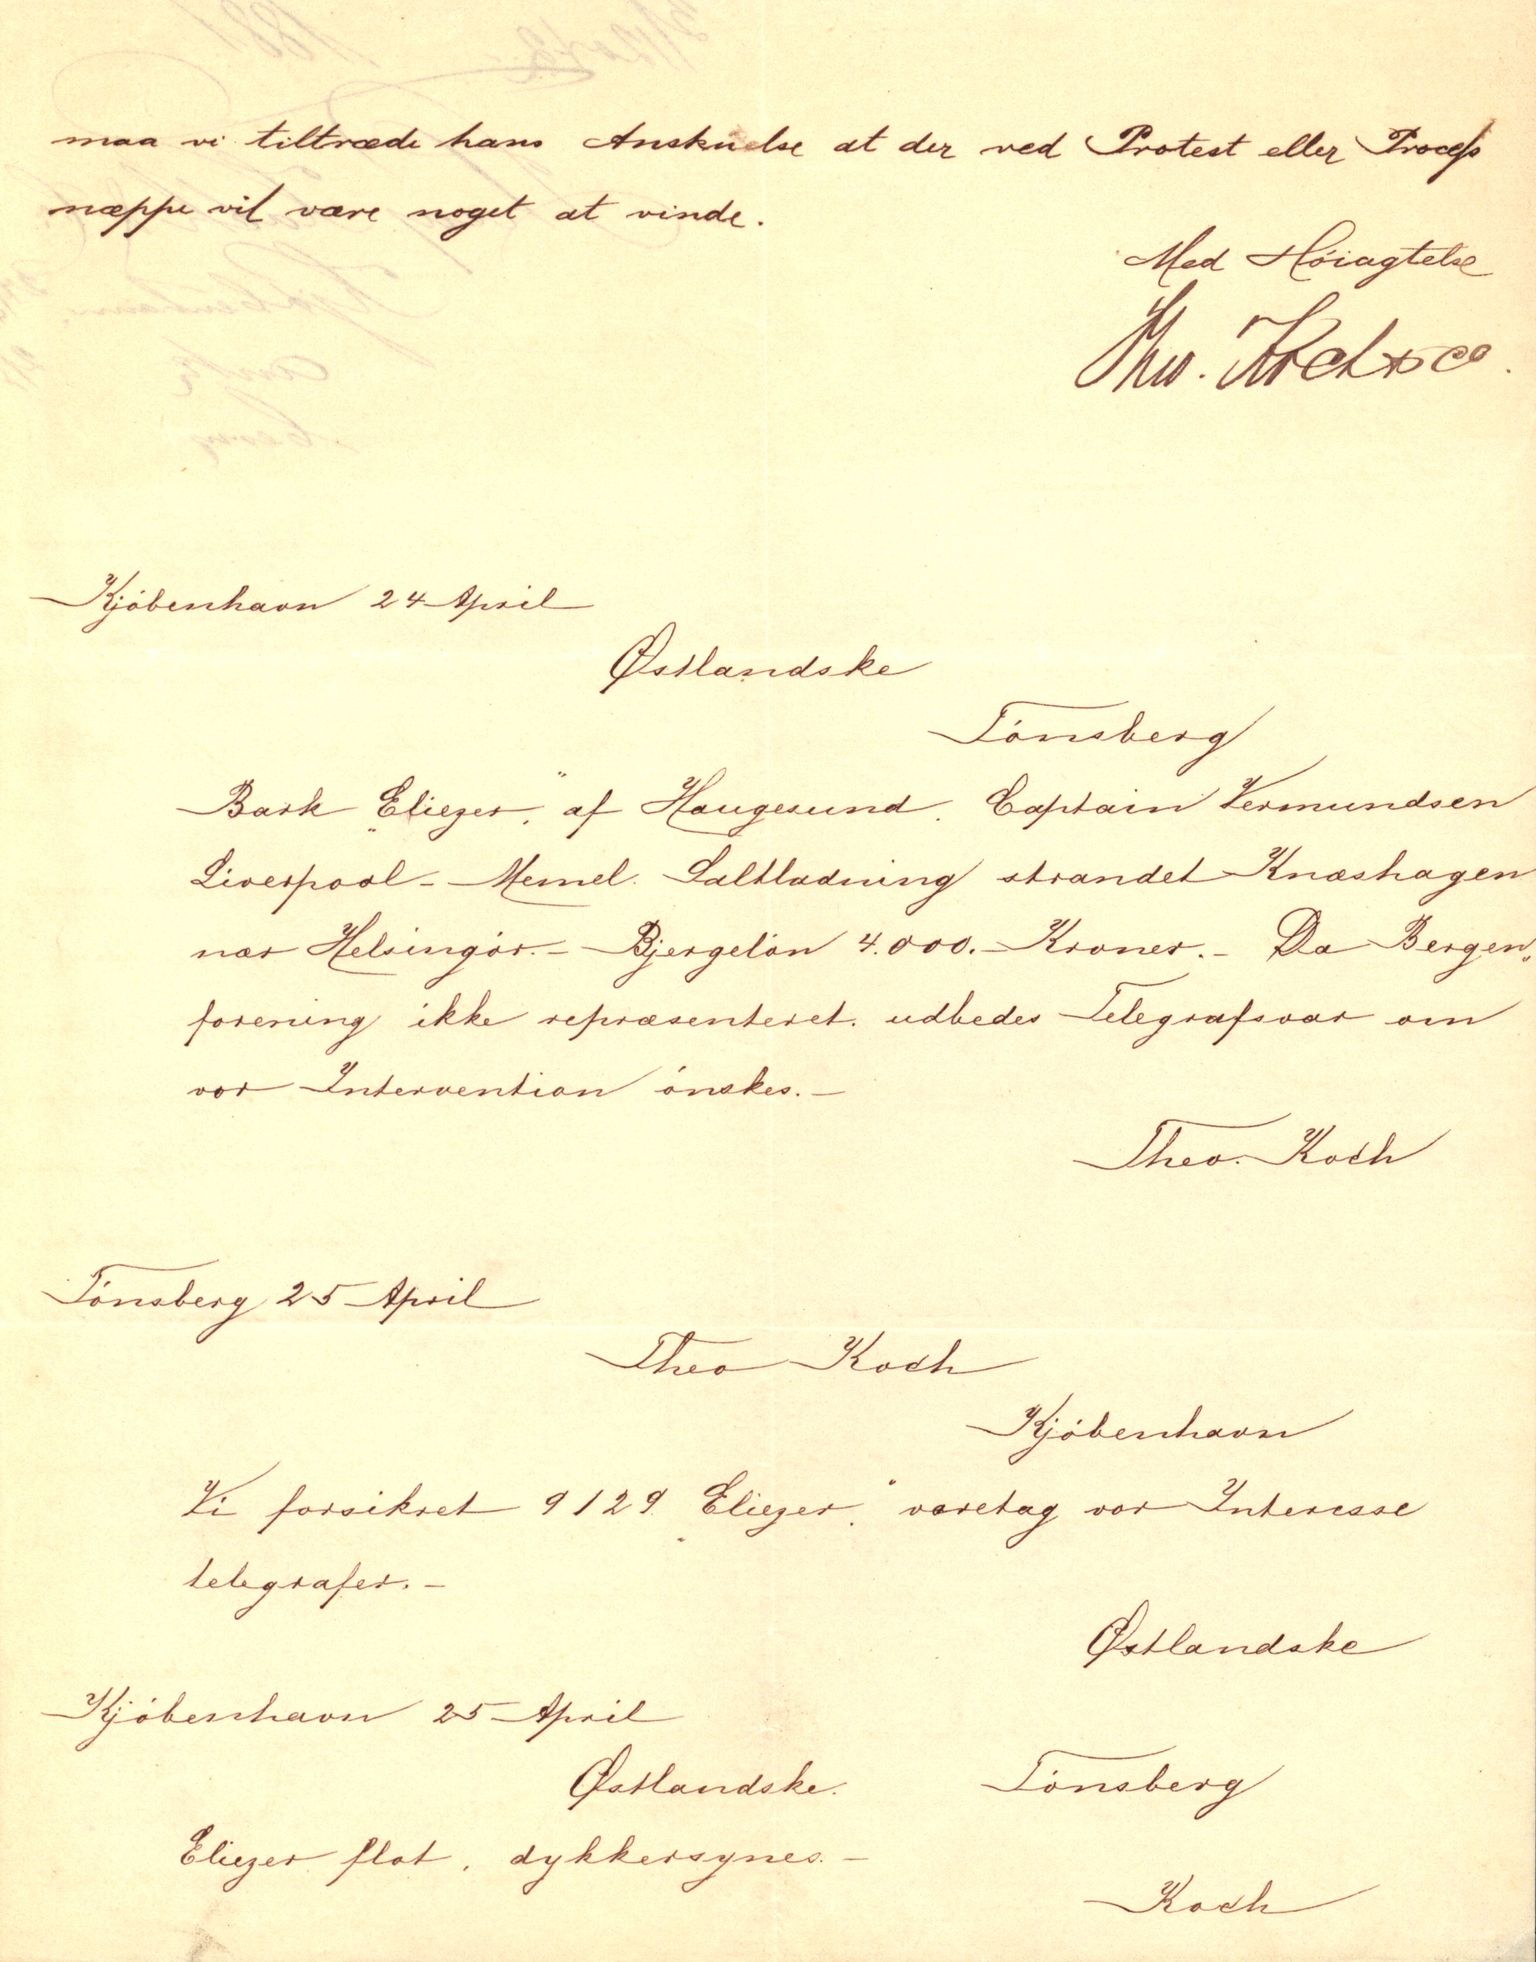 maa vi tiltræde hans Anskuelse at der ved Protest eller Proces
næppe vil være noget at vinde.
Med Høiagtelse
Theo. Koch & Co.
Kjöbenhavn 24 April
Østlandske
Tönsberg
Bark „Eliezer“ af Haugesund. Captain Vermundsen
Liverpool - Memel. Saltladning strandet Knæshagen
nær Helsingör. - Bjergelön 4.000. - Kroner. - Da Bergen„
forening ikke repræsenteret. udbedes Telegrafsvar om
vor Intervention önskes. -
Theo. Koch
Tönsberg 25 April
Theo Koch
Kjöbenhavn
Vi forsikret 9129 „Eliezer.“ varetag vor Interesse
telegrafer. -
Østlandske
Kjöbenhavn 25 April
Østlandske. Tönsberg
Eliezer flot, dykkersynes. -
Koch